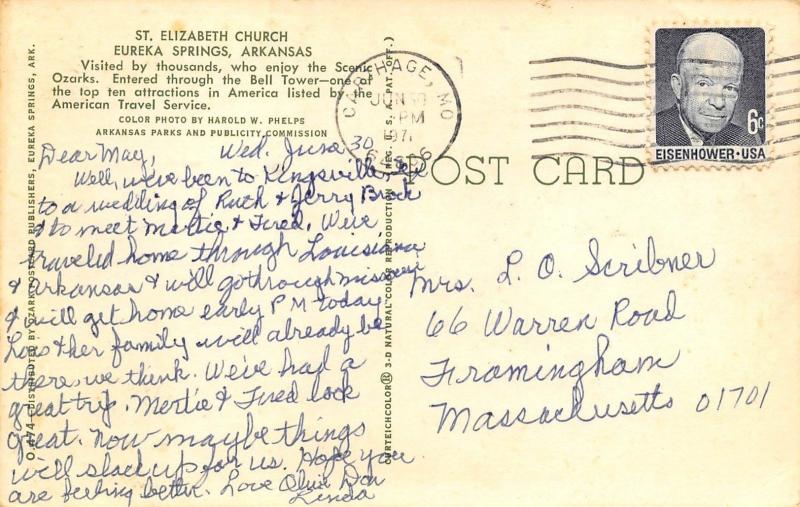 ST. ELIZABETH CHURCH
EUREKA SPRINGS, ARKANSAS
Visited by thousands, who enjoy the Scenic
Ozarks. Entered through the Bell Tower—one of
the top ten attractions in America listed by the
American Travel Service.
COLOR PHOTO BY HAROLD W. PHELPS
ARKANSAS PARKS AND PUBLICITY COMMISSION
Dear May, Wed. June 30
Well, we've been to Kingsville
to a wedding of Ruth & Jerry Brock
& to meet Mertie & Fred. We've
traveled home through Louisiana
& Arkansas & will go through Missouri
& will get home early PM today
Lois & her family will already be
there, we think. We've had a
great trip. Mertie & Fred look
great. Now maybe things
will slack up for us. Hope you
are feeling better. Love Olive Don
Linda
DISTRIBUTED BY OZARK POSTCARD PUBLISHERS, EUREKA SPRINGS, ARK.
CURTEICHCOLOR® 3-D NATURAL COLOR REPRODUCTION (REG. U.S.A. PAT. OFF.)
POST CARD
CARTHAGE, MO
JUN 30
PM
197
EISENHOWER·USA
6c
Mrs. L. O. Scribner
66 Warren Road
Framingham
Massachusetts 01701